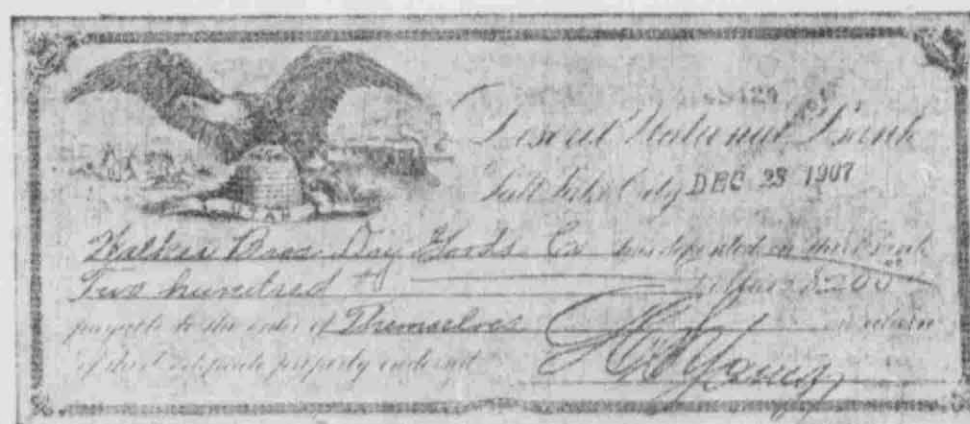 Deseret National Bank
Salt Lake City DEC 23 1907
Walker Bros. Dry Goods Co. has deposited in this Bank
Two hundred Dollars $200
payable to the order of Themselves on return
of this Certificate properly endorsed
Young